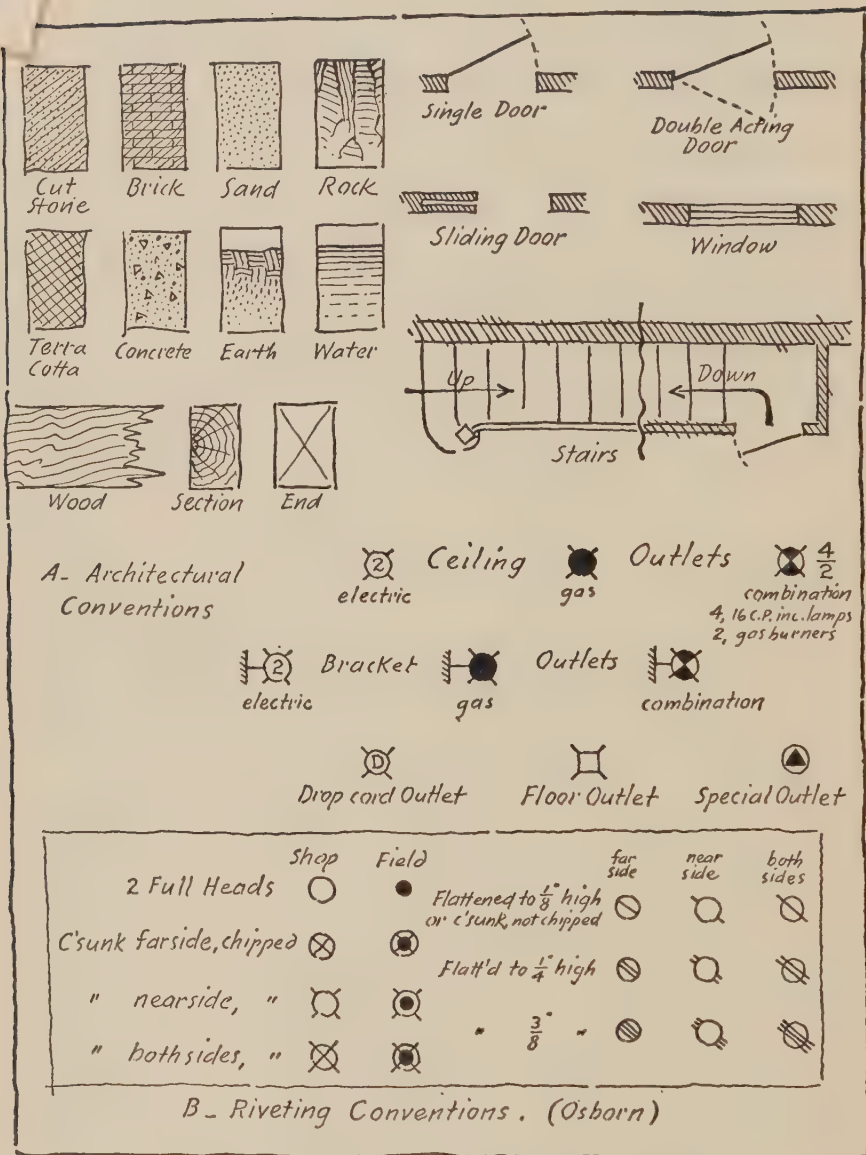 Cut
Stone
Brick
Sand
Rock
Single Door
Double Acting
Door
Sliding Door
Window
Terra
Cotta
Concrete
Earth
Water
Up
Down
Stairs
Wood
Section
End
A- Architectural
Conventions
2 Ceiling Outlets 4/2
electric
gas
combination
4, 16 C.P. inc. lamps
2, gas burners
2 Bracket Outlets
electric
gas
combination
D
Drop cord Outlet
Floor Outlet
Special Outlet
Shop Field
2 Full Heads
C'sunk farside, chipped
" nearside, "
" both sides, "
far
side
near
side
both
sides
Flattened to 1/8" high
or c'sunk, not chipped
Flatt'd to 1/4" high
" 3/8" "
B- Riveting Conventions. (Osborn)